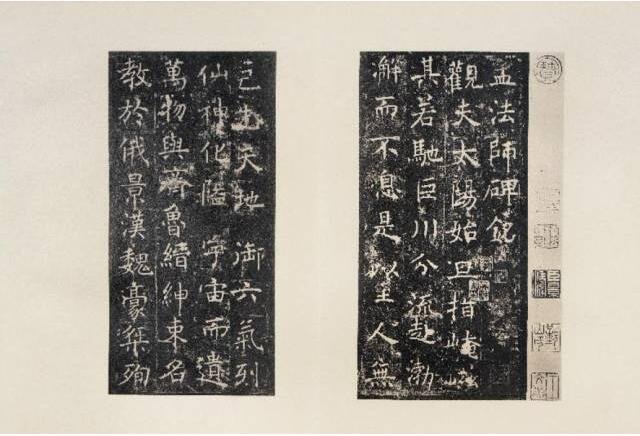 孟法師碑銘
觀夫太陽始旦指崦嵫
其若馳巨川分流赴渤
澥而不息是以至人無
天地御六氣列
仙神化隘宇宙而遺
萬物與齊魯縉紳束名
教於俄景漢魏豪桀殉